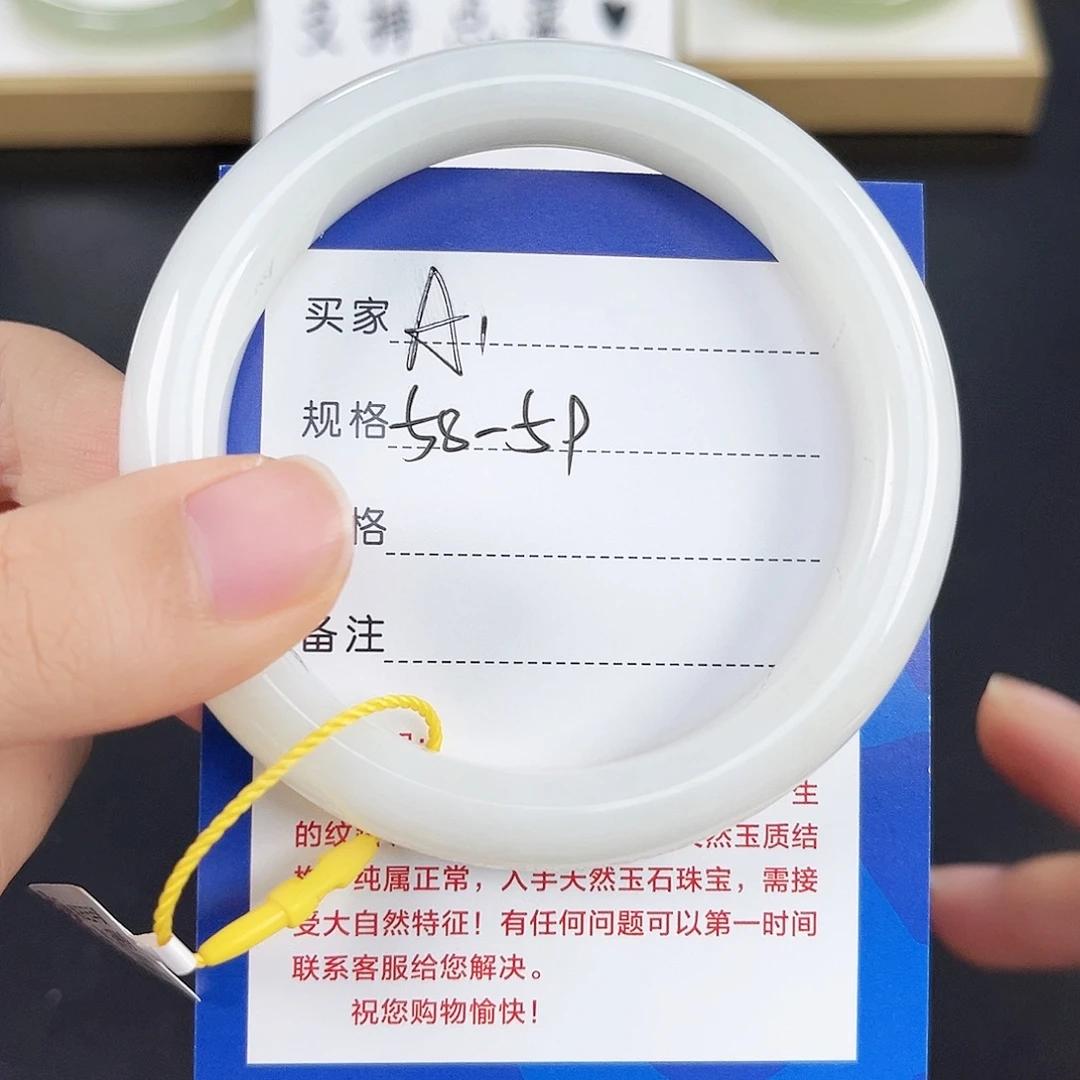 支持
买家 A1
规格 58-5P
格
备注
生
的纹 然玉质结
纯属正常，入手天然玉石珠宝，需接
受大自然特征！有任何问题可以第一时间
联系客服给您解决。
祝您购物愉快！